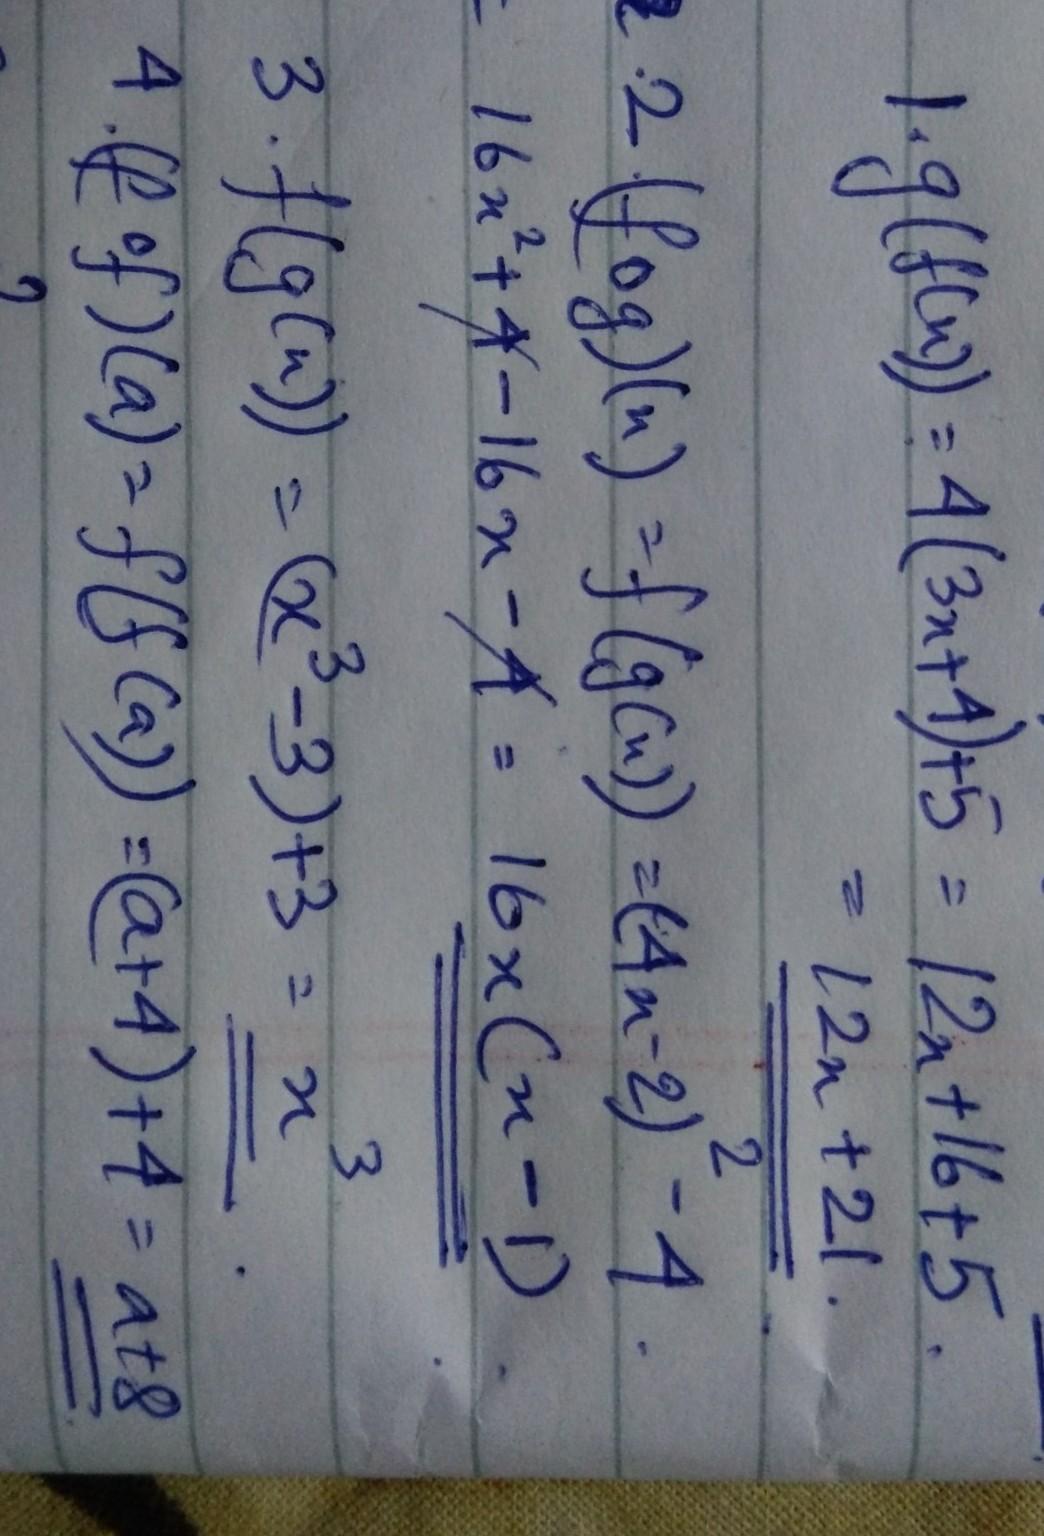 1. g(f(x)) = 4(3x+4)+5 = 12x+16+5.
= 12x+21.
2. (fog)(x) = f(g(x)) = (4x-2)² - 4.
= 16x²+4-16x-4 = 16x(x-1)
3. f(g(x)) = (x³-3)+3 = x³.
4. (fof)(a) = f(f(a)) = (a+4)+4 = a+8